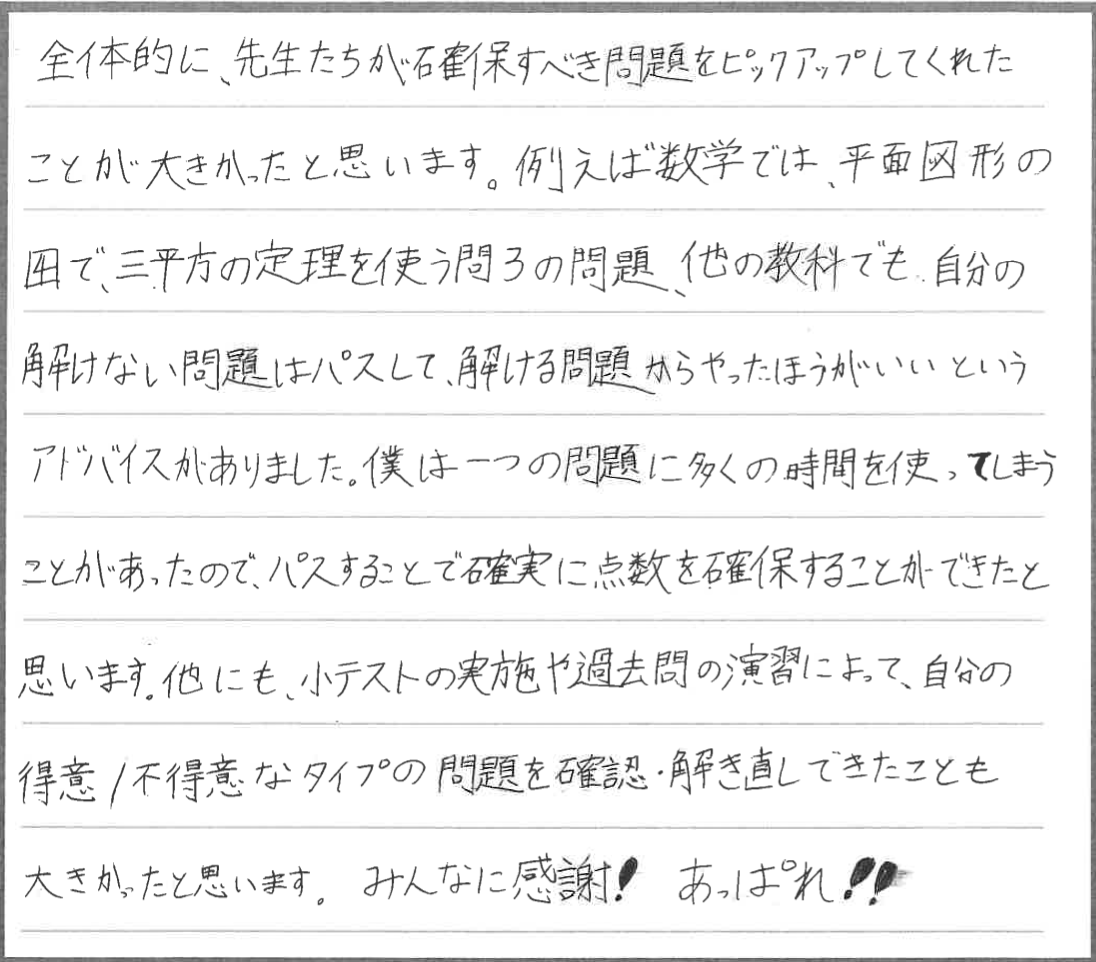 全体的に、先生たちが確保すべき問題をピックアップしてくれた
ことが大きかったと思います。例えば数学では、平面図形の
中で、三平方の定理を使う問3の問題、他の教科でも、自分の
解けない問題はパスして、解ける問題からやったほうがいいという
アドバイスがありました。僕は一つの問題に多くの時間を使ってしまう
ことがあったので、パスすることで確実に点数を確保することができたと
思います。他にも、小テストの実施や過去問の演習によって、自分の
得意/不得意なタイプの問題を確認・解き直しできたことも
大きかったと思います。 みんなに感謝! あっぱれ!!